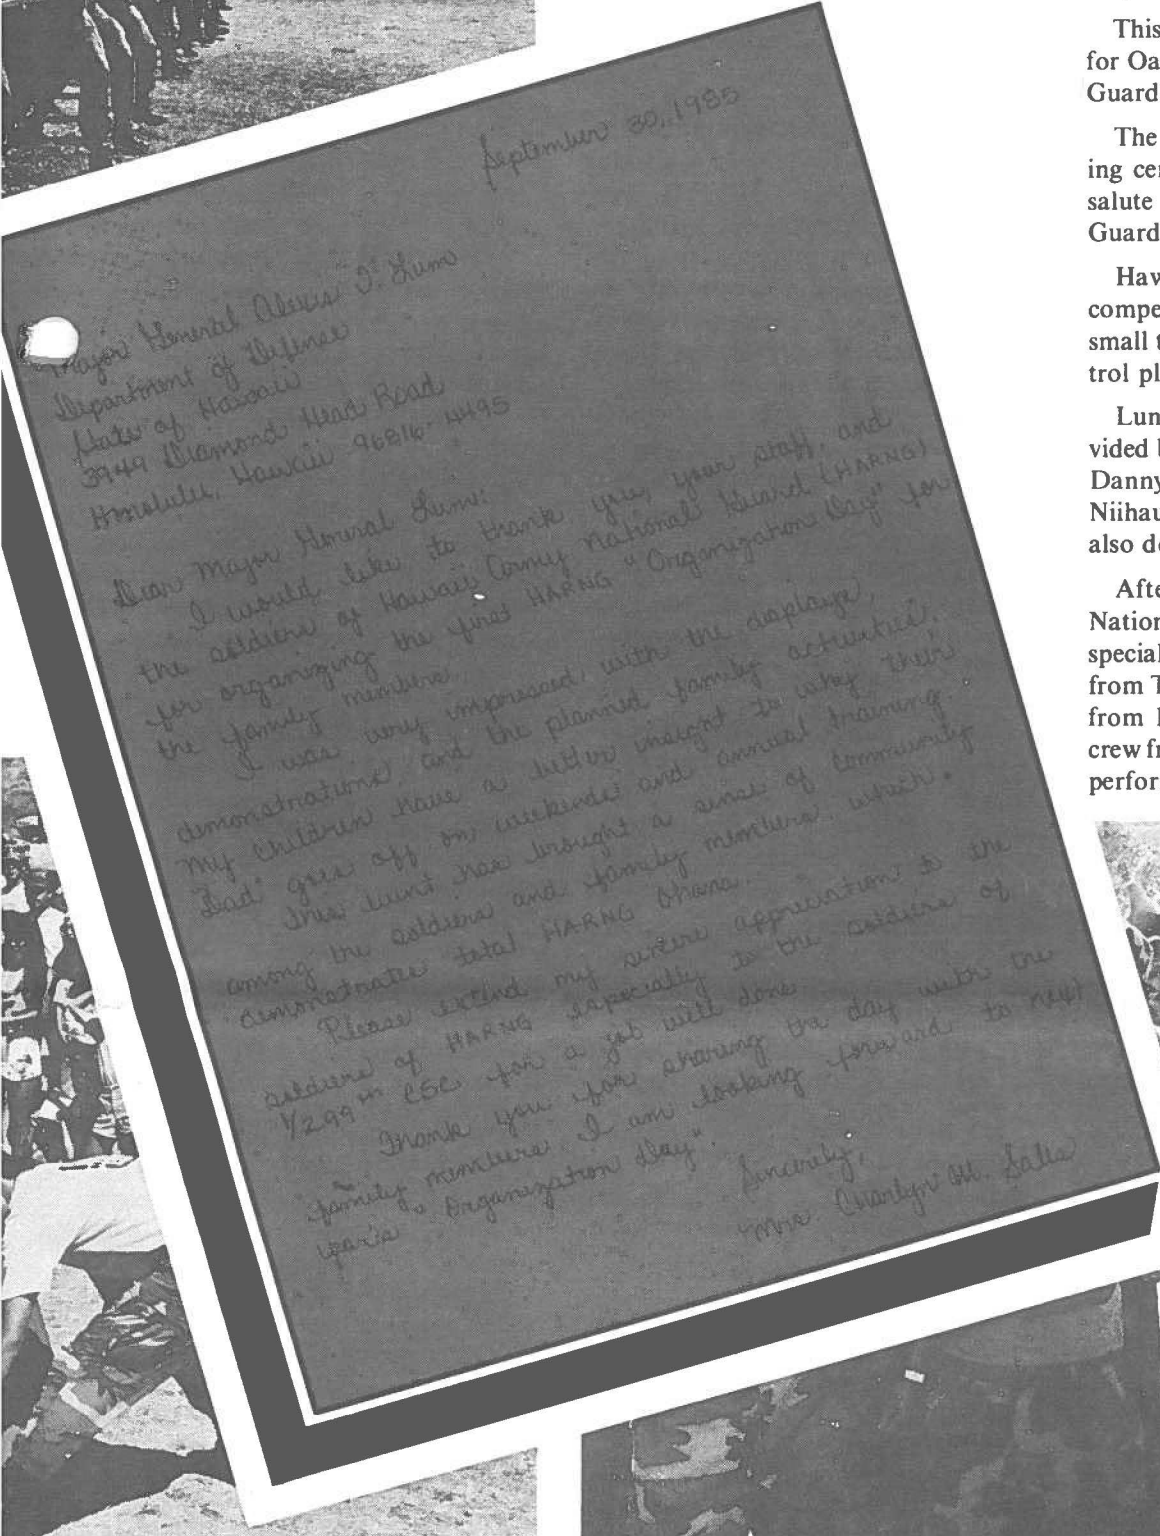 September 30, 1985
Major General Alexis T. Lum
Department of Defense
State of Hawaii
3949 Diamond Head Road
Honolulu, Hawaii 96816-4495
Dear Major General Lum:
I would like to thank you, your staff, and
the soldiers of Hawaii Army National Guard (HARNG)
for organizing the first HARNG "Organization Day" for
the family members.
I was very impressed with the displays,
demonstrations and the planned family activities.
My children have a better insight to why their
"Dad" goes off on weekends and annual training.
This event has brought a sense of community
among the soldiers and family members which
demonstrates total HARNG Ohana.
Please extend my sincere appreciation to the
soldiers of HARNG especially to the soldiers of
1/299th CSC for a job well done.
Thank you for sharing the day with the
family members. I am looking forward to next
year's "Organization Day".
Sincerely,
Mrs. M. Salis
This
for Oa
Guard
The
ing cer
salute
Guard
Haw
compe
small t
trol pl
Lun
vided b
Danny
Niihau
also de
Afte
Nation
special
from T
from
crew fr
perfor